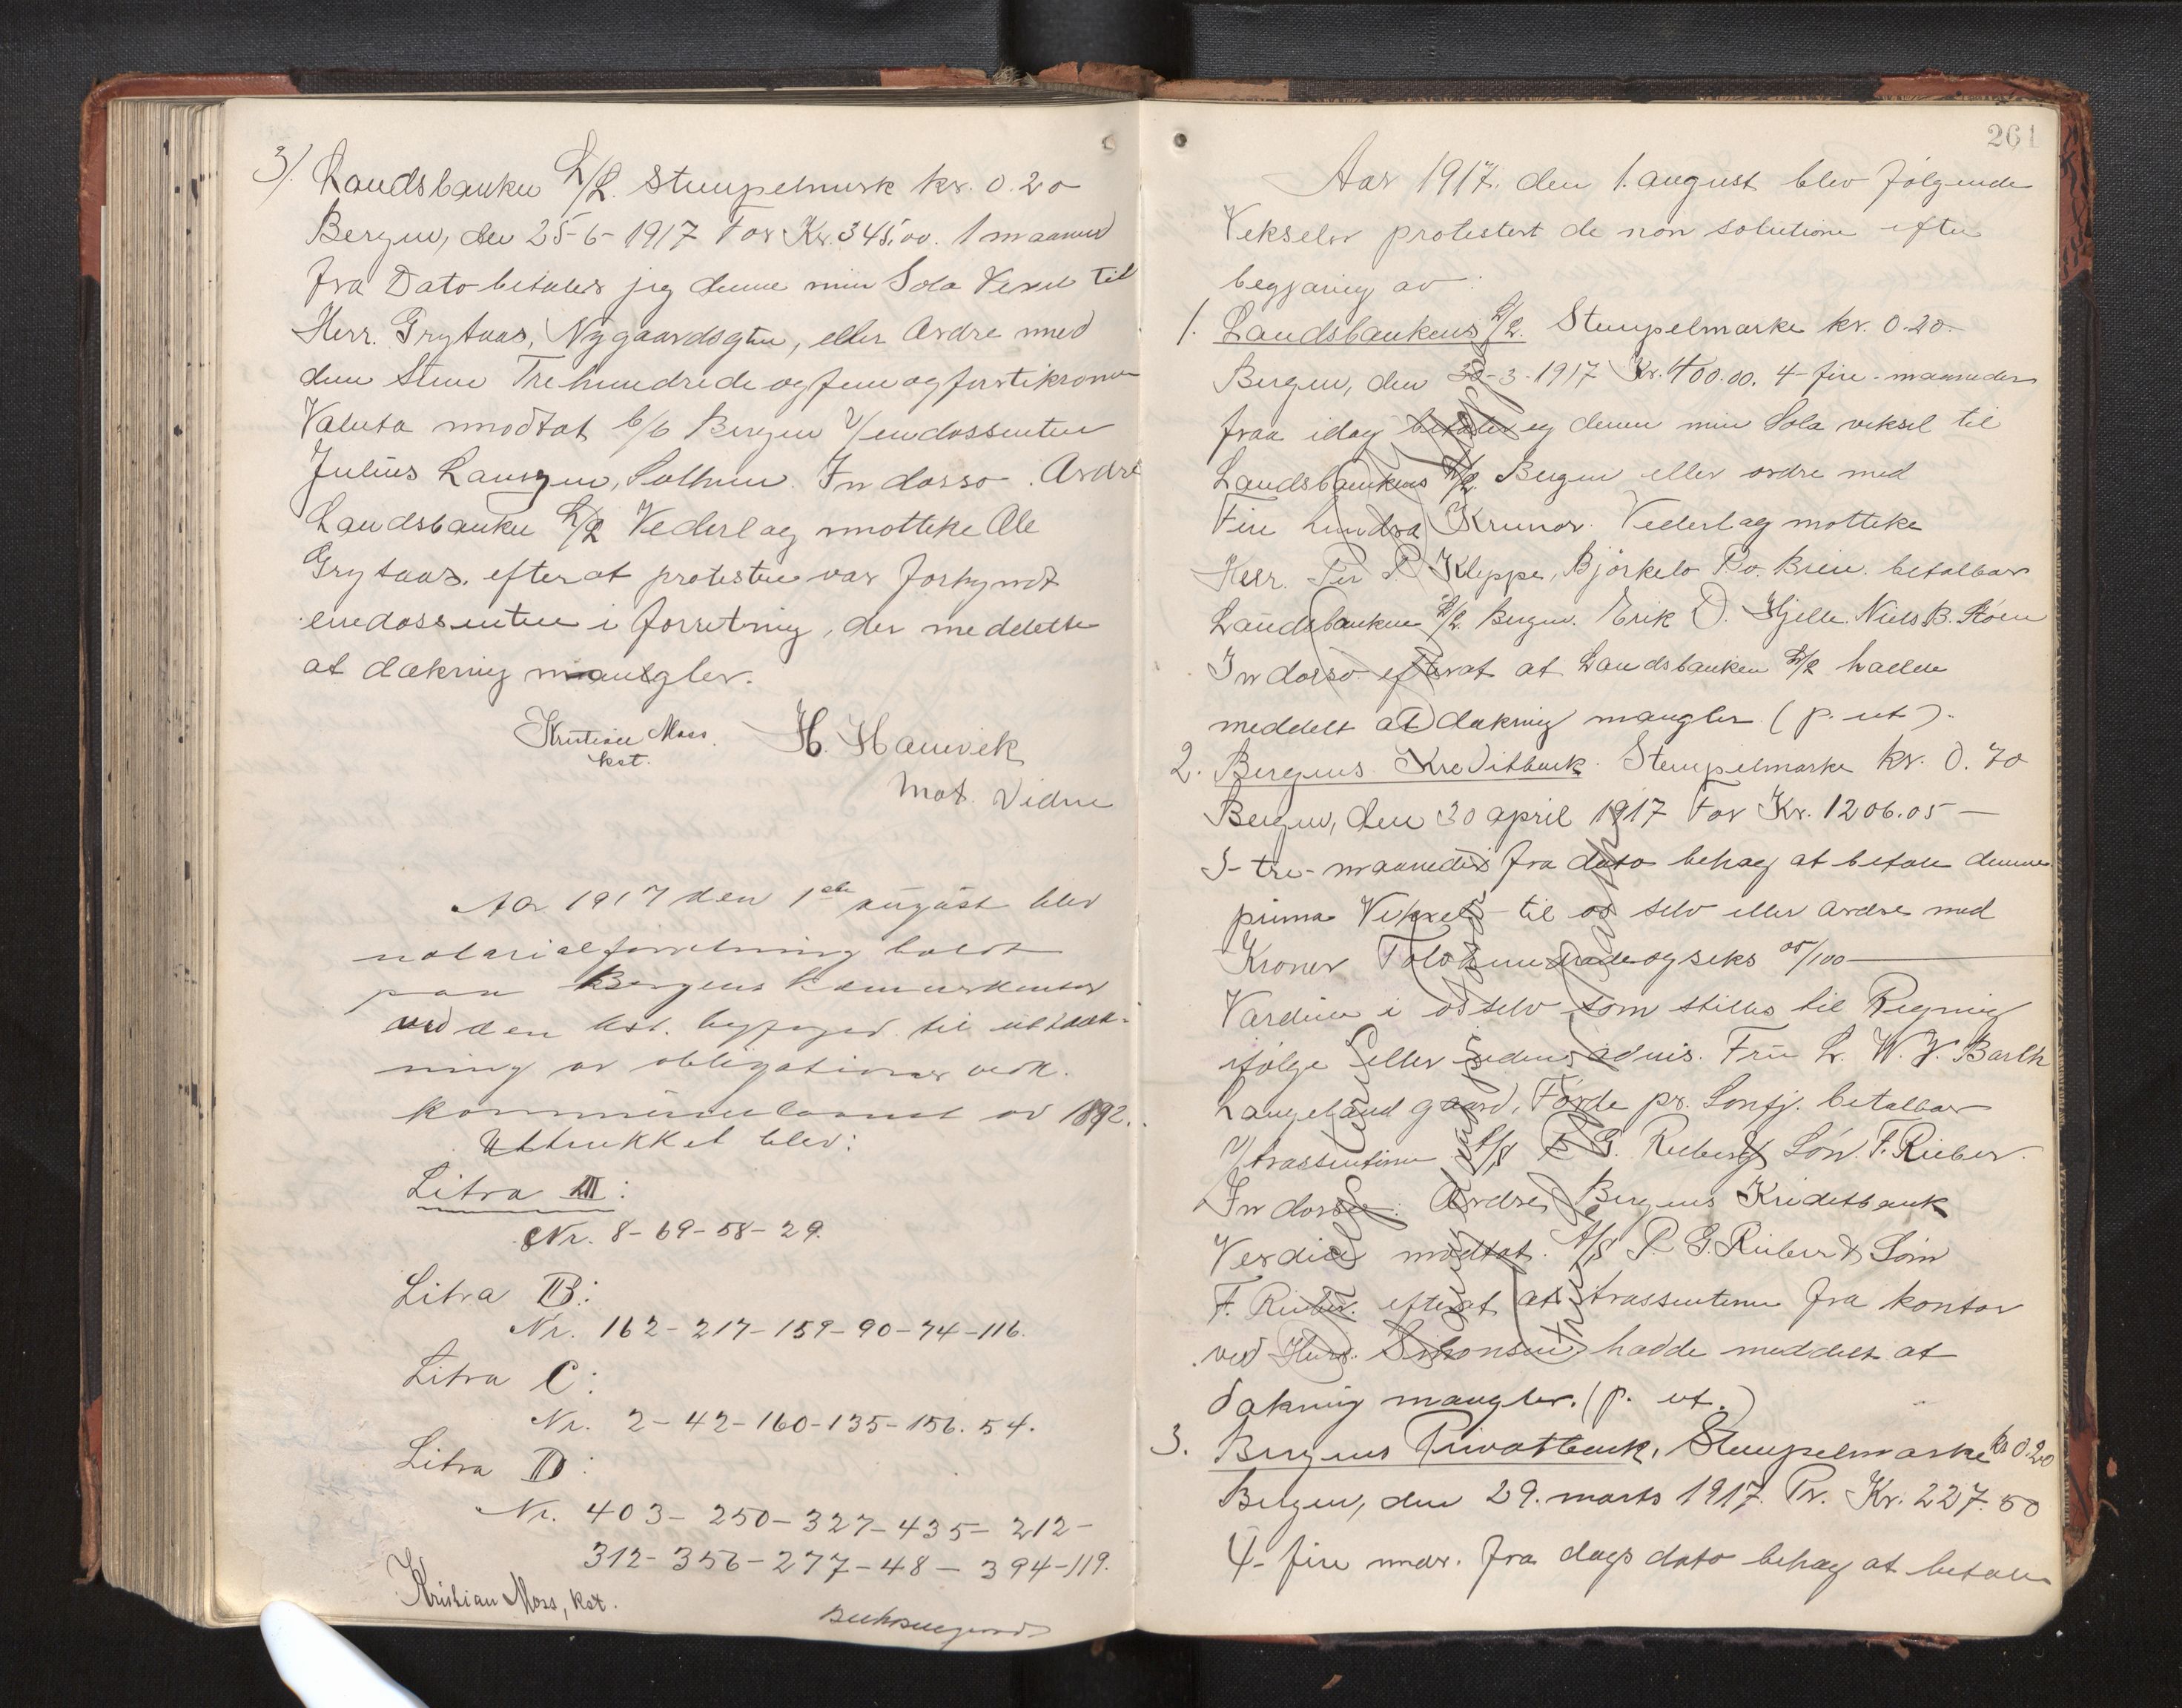 3). Landsbanken L/L. Stempelmerk kr. 0.20
Bergen, den 25-6-1917 For Kr. 345,00. 1 maaned
fra Dato betaler jeg denne min Sola Vexel til
Herr. Grytaas, Nygaardsgten, eller Ordre med
den Sum Trehundrede og fem og førtikroner
Valuta modtat b/b Bergen v/endossenten
Julius Laursen, Indosso. Ordre
Landsbanken L/L Vederlag motteke Ole
Grytaas. efter at protesten var forkyndt
endossenten i forretning, der meddelte
at dækning mangler.
Kristian Moss. H. Hamvik
kst.
Not. Vidne
Aar 1917 den 1ste august blev
notarialforretning holdt
paa Bergens Kæmnerkontor
ved den kst. byfoged til uttræk-
ning av obligationer vedk.
kommunelaanet av 1892.
Uttrukket blev:
Litra A:
Nr. 8-69-58-29.
Litra B:
Nr. 162-217-159-90-74-116.
Litra C:
Nr. 2-42-160-135-156.54.
Litra D:
Nr. 403-250-327-435-212-
312-356-277-48-394-119.
Kristian Moss, kst.
261
Aar 1917. den 1. august blev følgende
Veksler protestert de non solutione efter
begjæring av:
1. Landsbankens L/L. Stempelmarke kr. 0.20.
Bergen, den 30-3-1917 Kr. 400.00. 4-fire-maaneder
fraa idag betaler eg denne min Sola veksel til
Landsbankens L/L. Bergen eller ordre med
Fire hundra Krunor. Vederlag motteke
Herr. Per P. Kleppe, Bjørkelo P.o. Breim. betalbar
Landsbanken L/L. Bergen. Erik O. Hjelle. Niels B. Støen
Indosso efterat at Landsbanken L/L hadde
meddelt at dækning mangler (p. ut).
2. Bergens Kreditbank. Stempelmarke kr. 0.70
Bergen, den 30 april 1917 For Kr. 1206.05 —
3-tre-maaneder fra dato behag at betale denne
prima Vexel til os selv eller ordre med
Kroner Tolvhundredeogseks 05/100
Værdien i os selv som stilles til Regning
ifølge eller uden advis. Fru L. W. J. Barth
Langeland gaard, Førde pr. Sønfj. betalbar
v/trassentene A/S P. G. Rieber & Søn. F. Rieber.
Indosso: Ordre Bergens Kreditbank
Verdien modtat. A/S P. G. Rieber & Søn
F. Rieber. efterat at trassentene fra kontor
ved Herr. Simonsen hadde meddelt at
dækning mangler. (p. ut.)
3. Bergens Privatbank, Stempelmarke kr 0.20
Bergen, den 29. marts 1917. Pr. Kr. 227.50
4-fire mndr. fra dags dato behag at betale